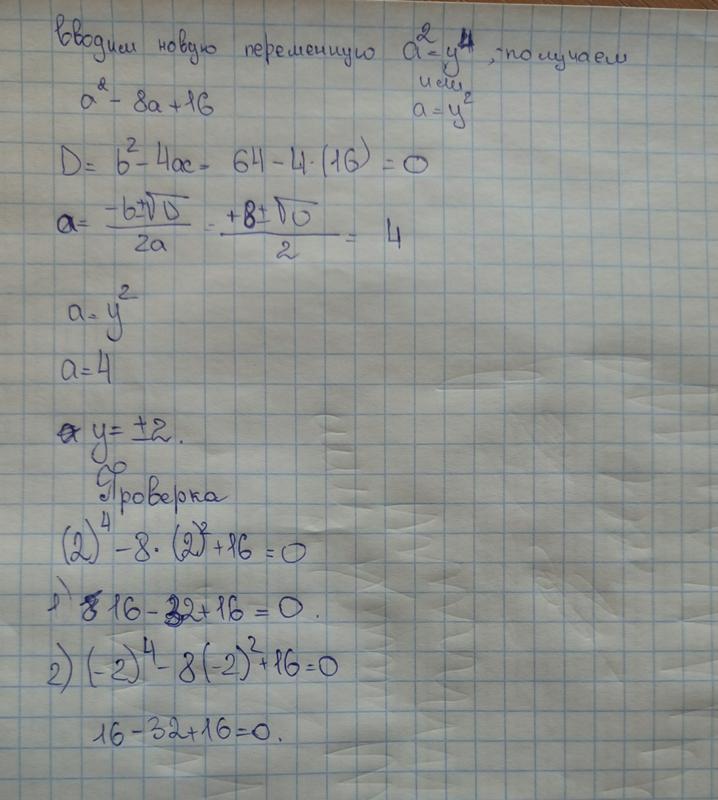 Вводим новую переменную a² = y⁴, получаем
или
a² - 8a + 16
a = y²
D = b² - 4ac = 64 - 4·(16) = 0
a = (-b±√D)/2a = (+8±√0)/2 = 4
a = y²
a = 4
y = ±2.
Проверка
(2)⁴ - 8·(2)² + 16 = 0
1) 16 - 32 + 16 = 0.
2) (-2)⁴ - 8(-2)² + 16 = 0
16 - 32 + 16 = 0.